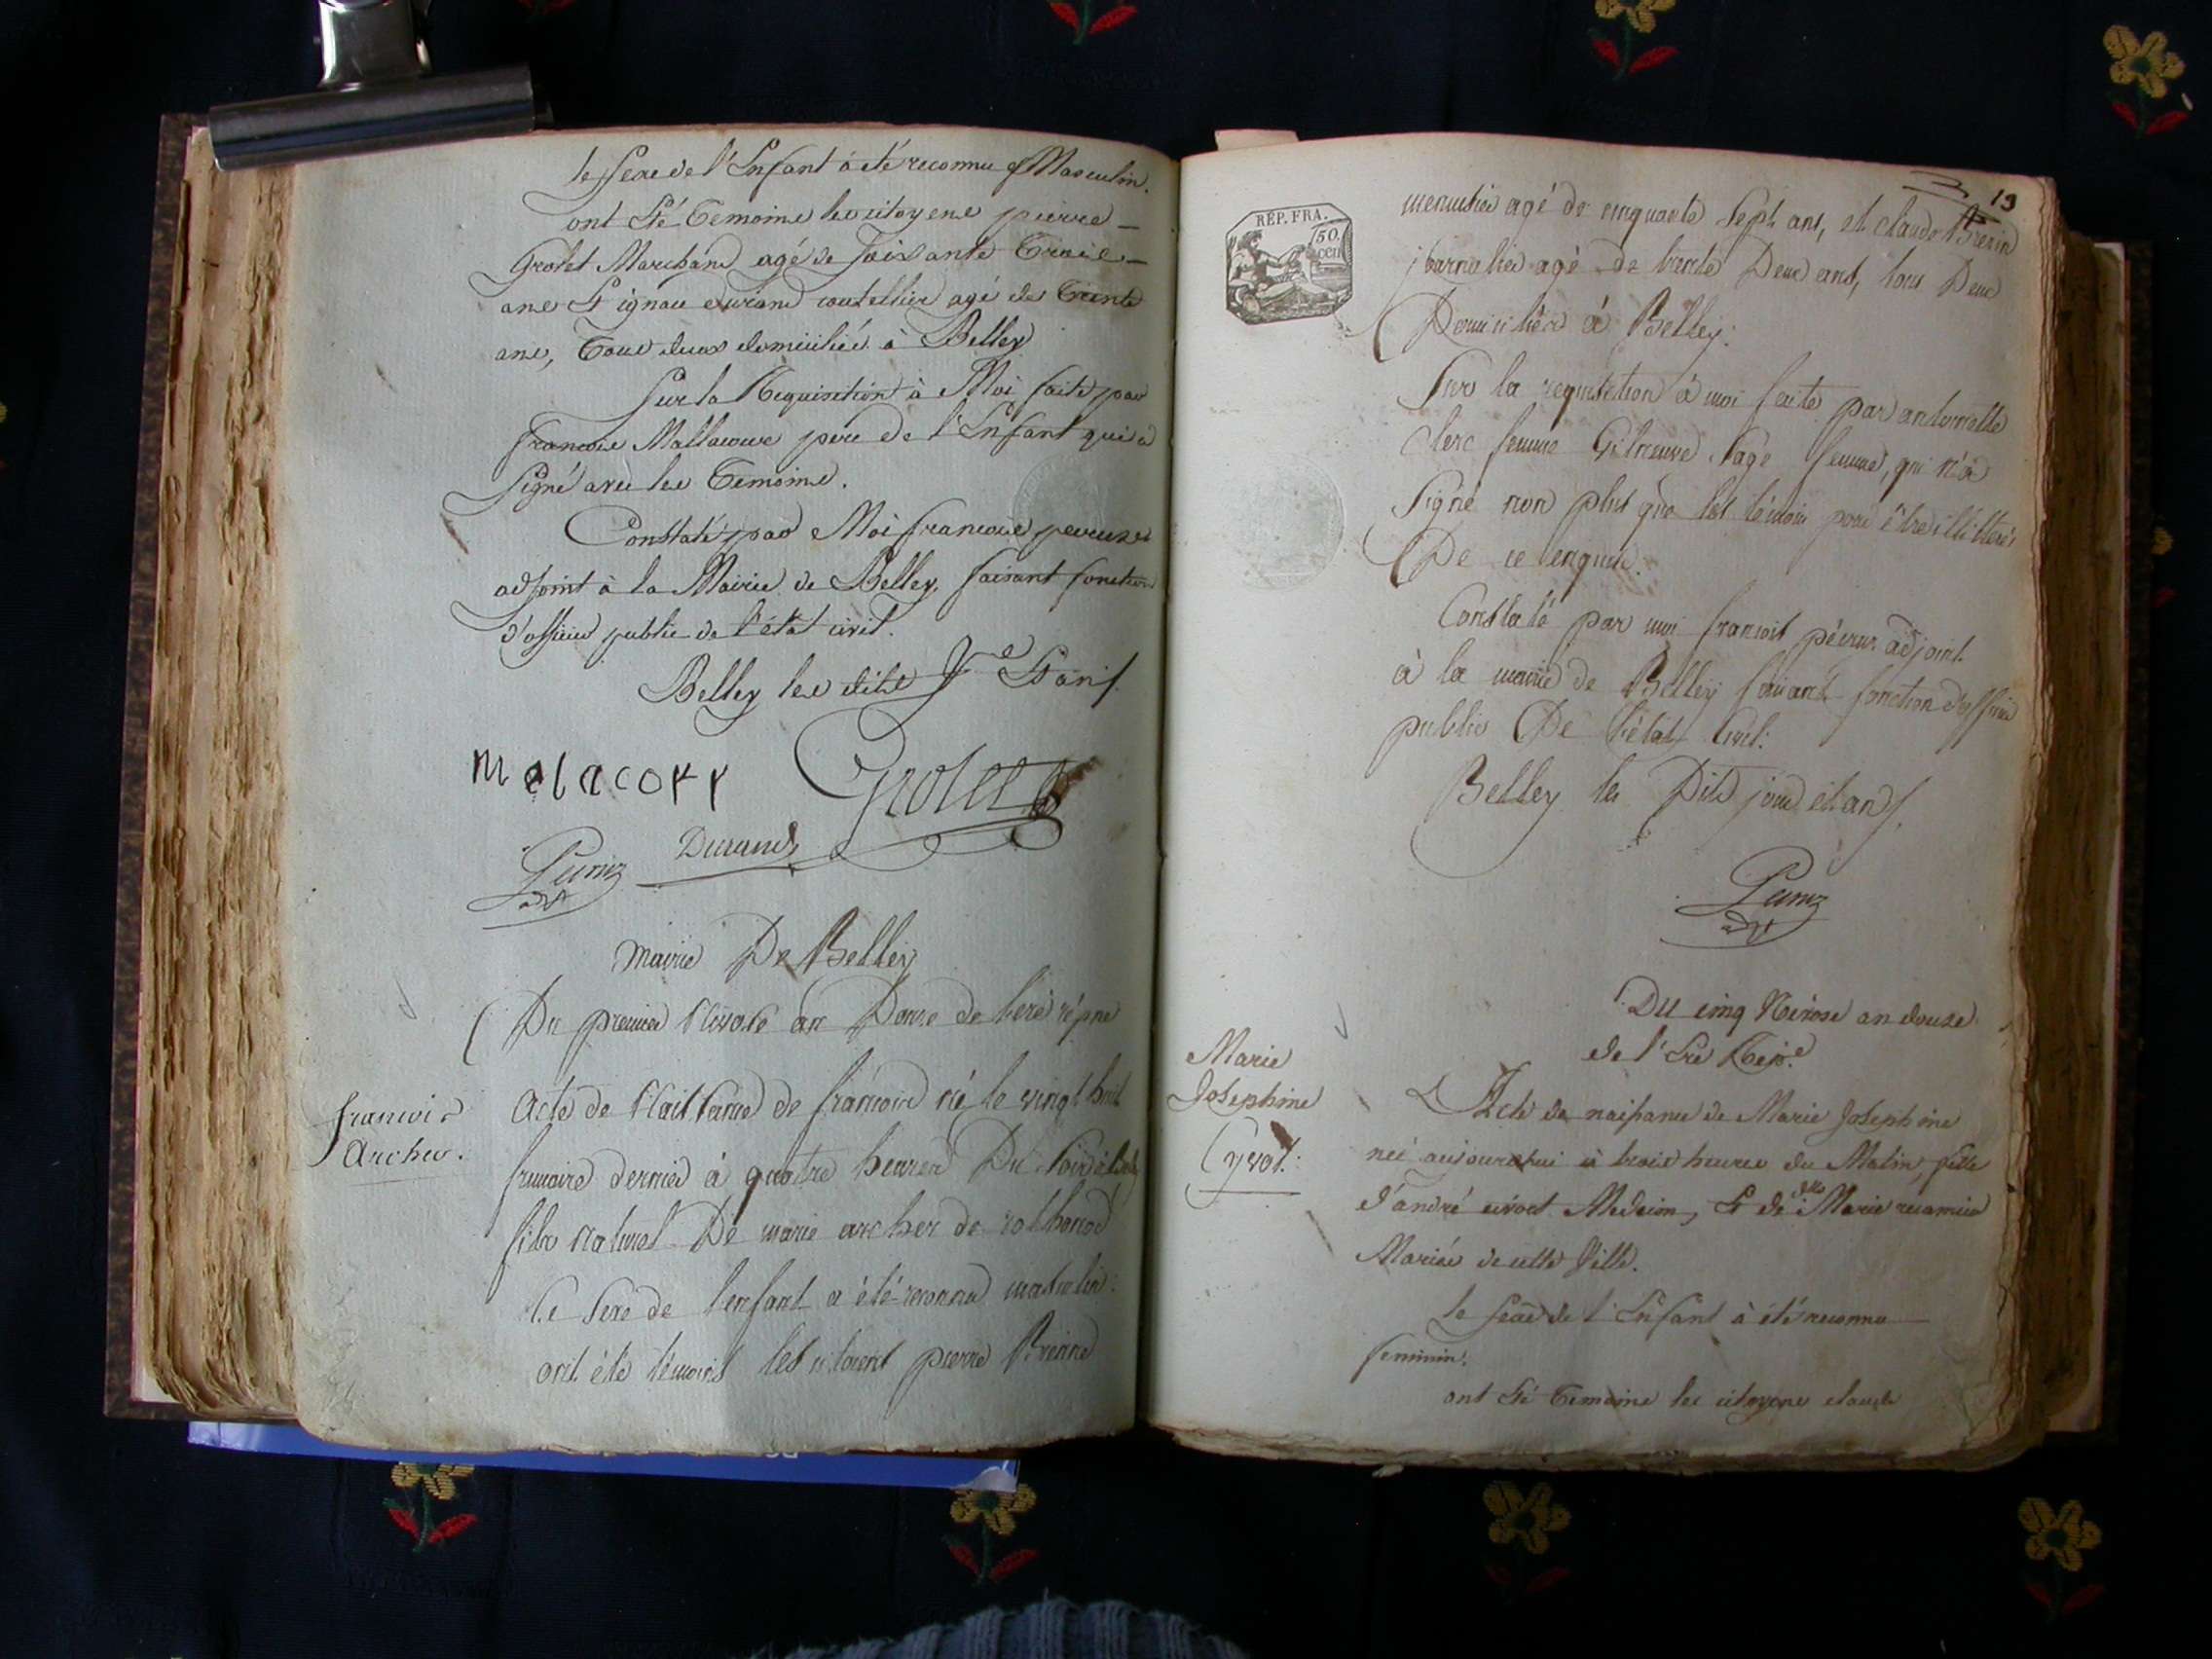 le sexe de l'Enfant à été reconnu Masculin.
ont Eté Temoins les citoyens pierre
Grolet Marchand agé de soixante Trois
ans Et ignace durand coutellier agé de Trente
ans, Tous deux domicilié à Belley
Sur la Requisition à Moi faite par
francois Mallacour pere de l'Enfant qui a
Signé avec les Temoins.
Constaté par Moi francois
adjoint à la Mairie de Belley, faisant fonction
d'officier public de l'état civil.
Belley les dits Jr Et an
Grolet
Durand
Mairie De Belley
Du premier Nivose an Douze de l'ere
francois
Archer.
Acte de Naissance de francois né le vingt huit
frimaire dernier à quatre heures Du soir
fils Naturel De marie archer de
Le sexe de l'enfant a été reconnu masculin.
ont été témoins les pierre
13
RÉP. FRA.
50.
cen
menuisier agé de cinquante sept ans, et claude
journalier agé de trente Deux ans, tous Deux
Domiciliés à Belley.
Sur la requisition à moi faite par
clerc femme Sage femme, qui n'a
Signé non plus que les témoins pour être illitérés
De ce enquis.
Constaté par moi francois adjoint
à la mairie de Belley faisant fonction d'officier
public De l'état Civil.
Belley les Dits jour et an
Du cinq Nivose an douze
de l'Ere Rep.e
Marie
Josephine
Acte de naissance de Marie Josephine
née aujourdhui à trois heures du Matin, fille
d'andré Medecin, Et de dlle Marie recamier
Mariés de cette Ville.
le sexe de l'Enfant à été reconnu
feminin.
ont Eté Temoins les citoyens claude